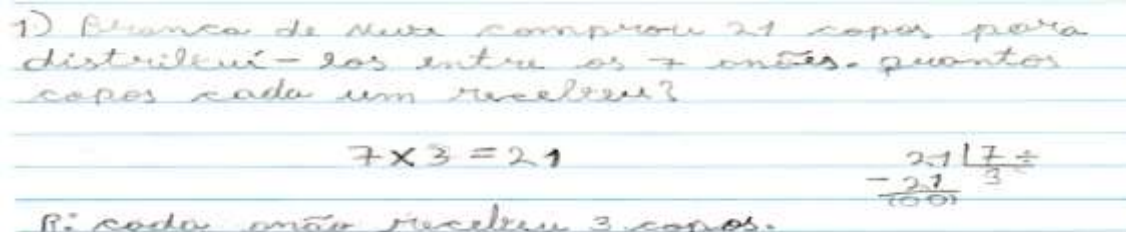 1) Branca de Neve comprou 21 copos para
distribuí-los entre os 7 anões. quantos
copos cada um recebeu?
7 x 3 = 21
21 | 7 ÷
- 21 3
(00)
R: cada anão recebeu 3 copos.